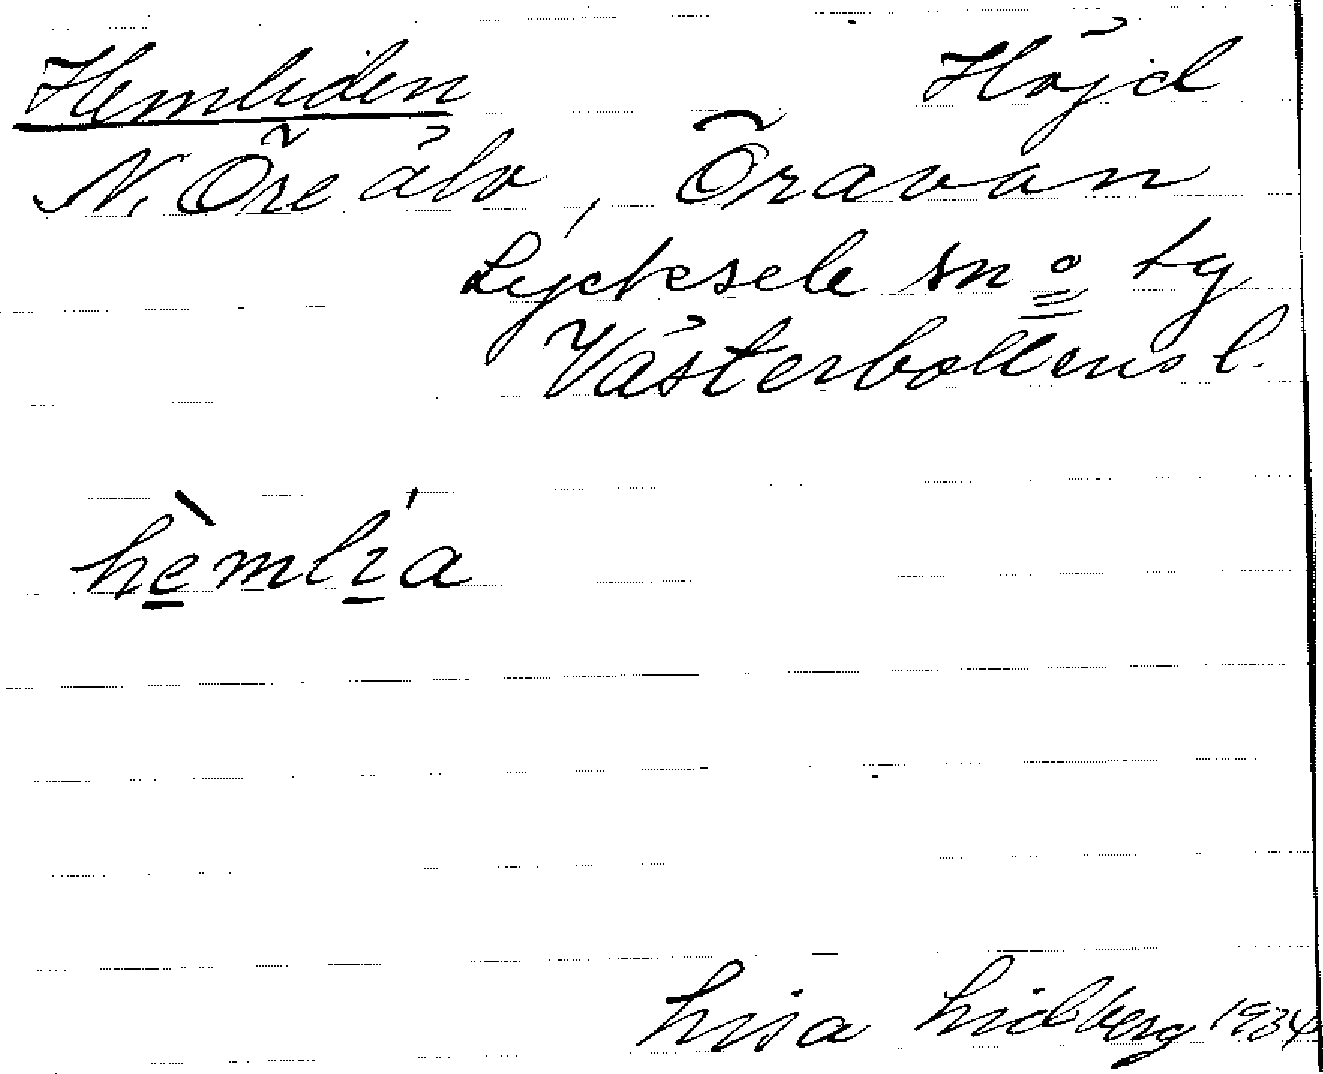 Hemliden Höjd
N. Öre älv, Öravan
Lycksele sn o tg
Västerbottens l.
hèmlı́a
Lisa Lidberg 1934